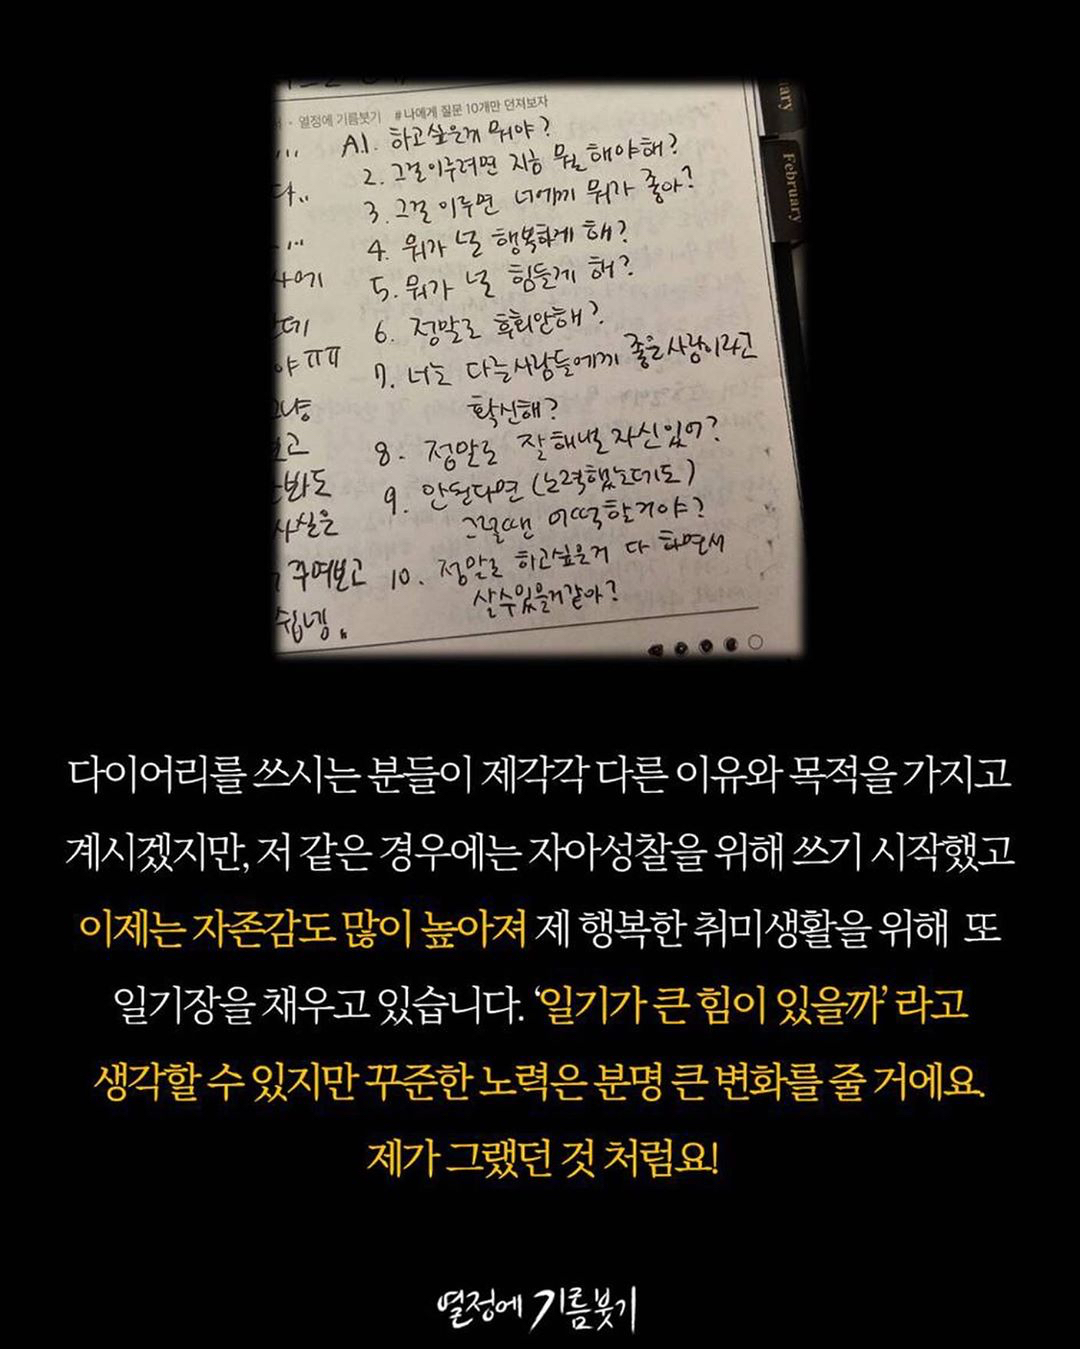 · 열정에 기름붓기 #나에게 질문 10개만 던져보자
A1. 하고싶은게 뭐야?
2. 그걸이루려면 지금 뭘 해야해?
3. 그걸 이루면 너에게 뭐가 좋아?
4. 뭐가 널 행복하게 해?
5. 뭐가 널 힘들게 해?
6. 정말로 후회안해?
7. 너는 다른사람들에게 좋은사람이라고
확신해?
8. 정말로 잘해낼 자신있어?
9. 안된다면 (노력했는데도)
그럴땐 어떡할거야?
10. 정말로 하고싶은거 다 하면서
살수있을거같아?
야ㅠㅠ
사실은
February
다이어리를 쓰시는 분들이 제각각 다른 이유와 목적을 가지고
계시겠지만, 저 같은 경우에는 자아성찰을 위해 쓰기 시작했고
이제는 자존감도 많이 높아져 제 행복한 취미생활을 위해 또
일기장을 채우고 있습니다. ‘일기가 큰 힘이 있을까’ 라고
생각할 수 있지만 꾸준한 노력은 분명 큰 변화를 줄 거에요.
제가 그랬던 것 처럼요!
열정에 기름붓기